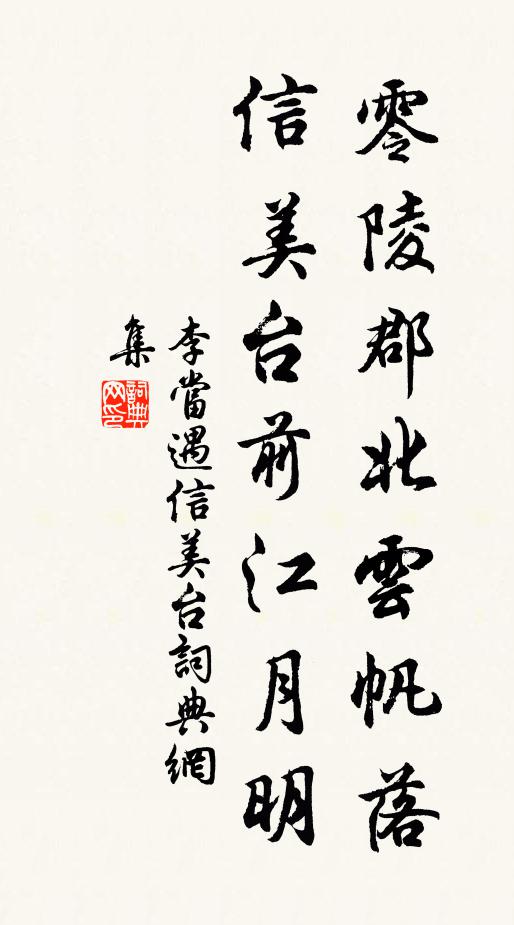 零陵郡北雲帆落
信美台前江月明
李當遇信美台詞典網
集
詞典
网印